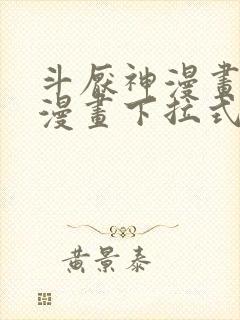 斗厭神漫畫
漫畫下拉式
黃景泰